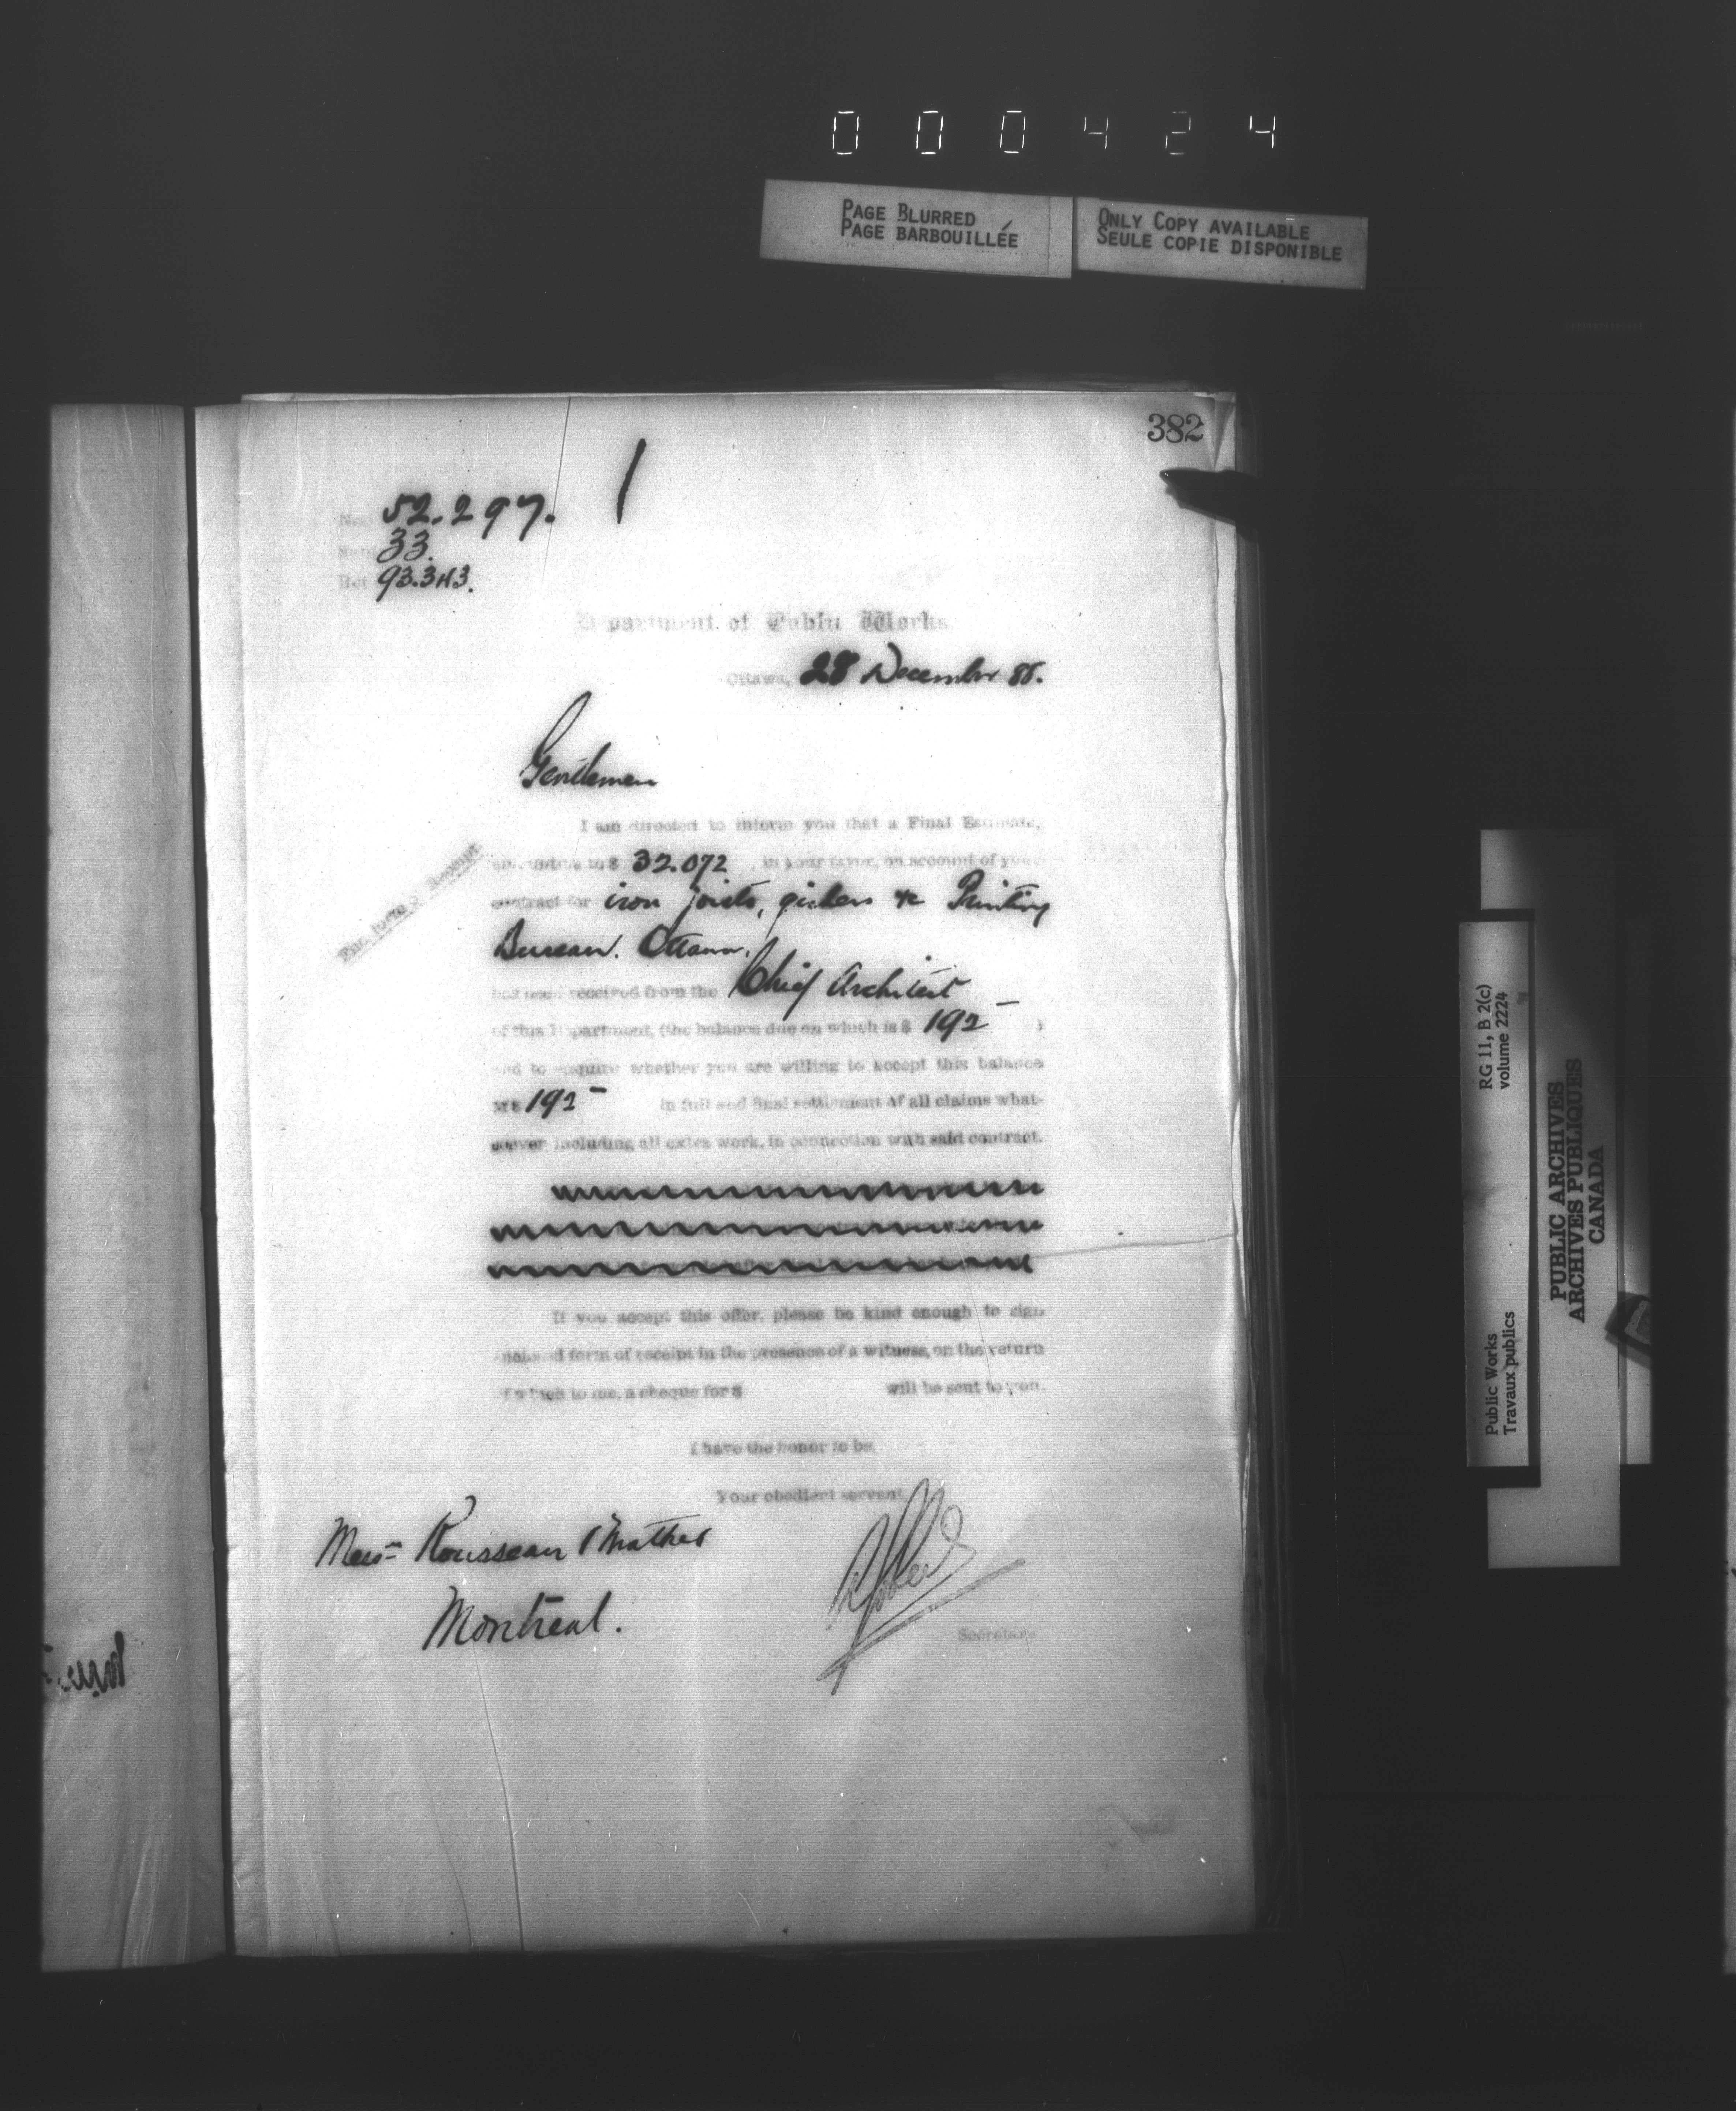 000424
PAGE BLURRED
PAGE BARBOUILLÉE
ONLY COPY AVAILABLE
SEULE COPIE DISPONIBLE
382
No. 52.297.
33.
Ref 93.343.
Department of Public Works
Ottawa, 28 December 88.
Gentlemen
I am directed to inform you that a Final Estimate,
amounting to $ 32.072, in your favor, on account of your
contract for iron joists, girders &c Printing
Bureau. Ottawa.
has been received from the Chief Architect
of this Department, (the balance due on which is $ 192 — )
and to enquire whether you are willing to accept this balance
of $ 192 — in full and final settlement of all claims what-
soever including all extra work, in connection with said contract.
If you accept this offer, please be kind enough to sign
enclosed form of receipt in the presence of a witness, on the return
of which to me, a cheque for $ will be sent to you.
I have the honor to be,
Your obedient servant
Messrs Rousseau & Mather
Montreal.
Secretary
RG 11, B 2(c)
volume 2224
Public Works
Travaux publics
PUBLIC ARCHIVES
ARCHIVES PUBLIQUES
CANADA